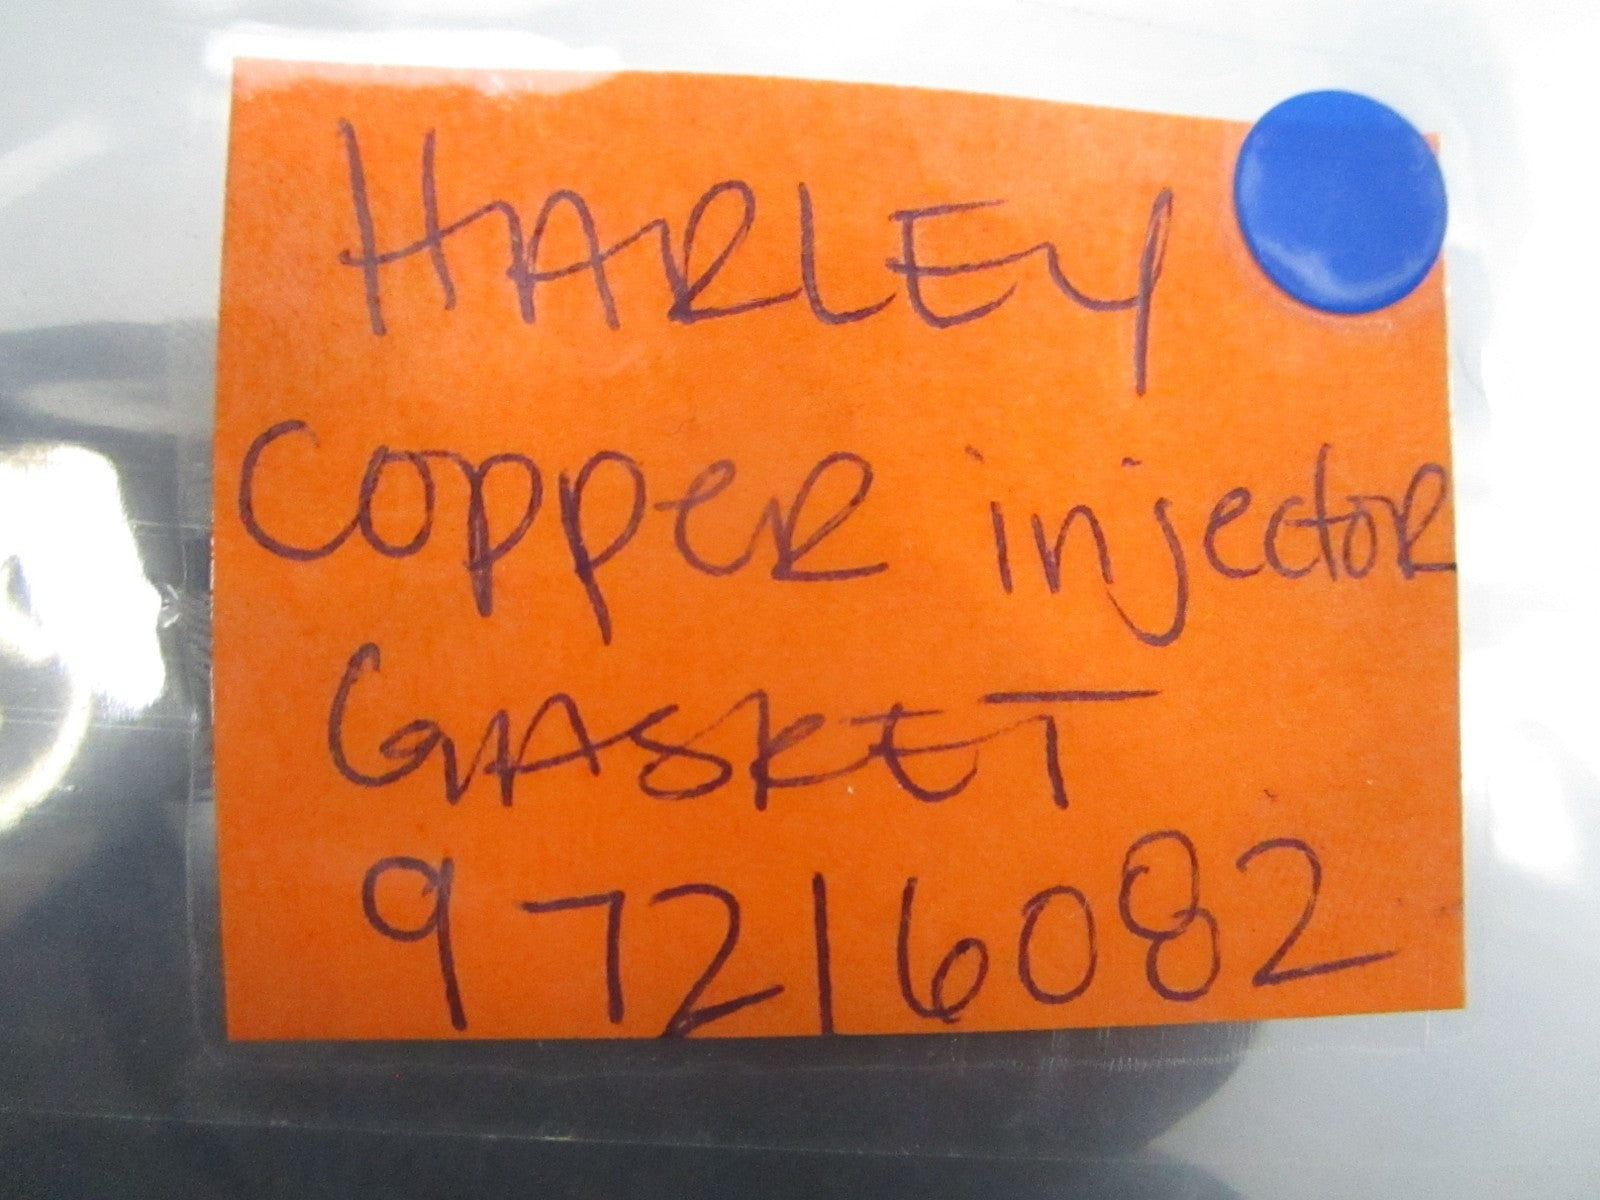 HARLEY
Copper injector
GASKET
97216082